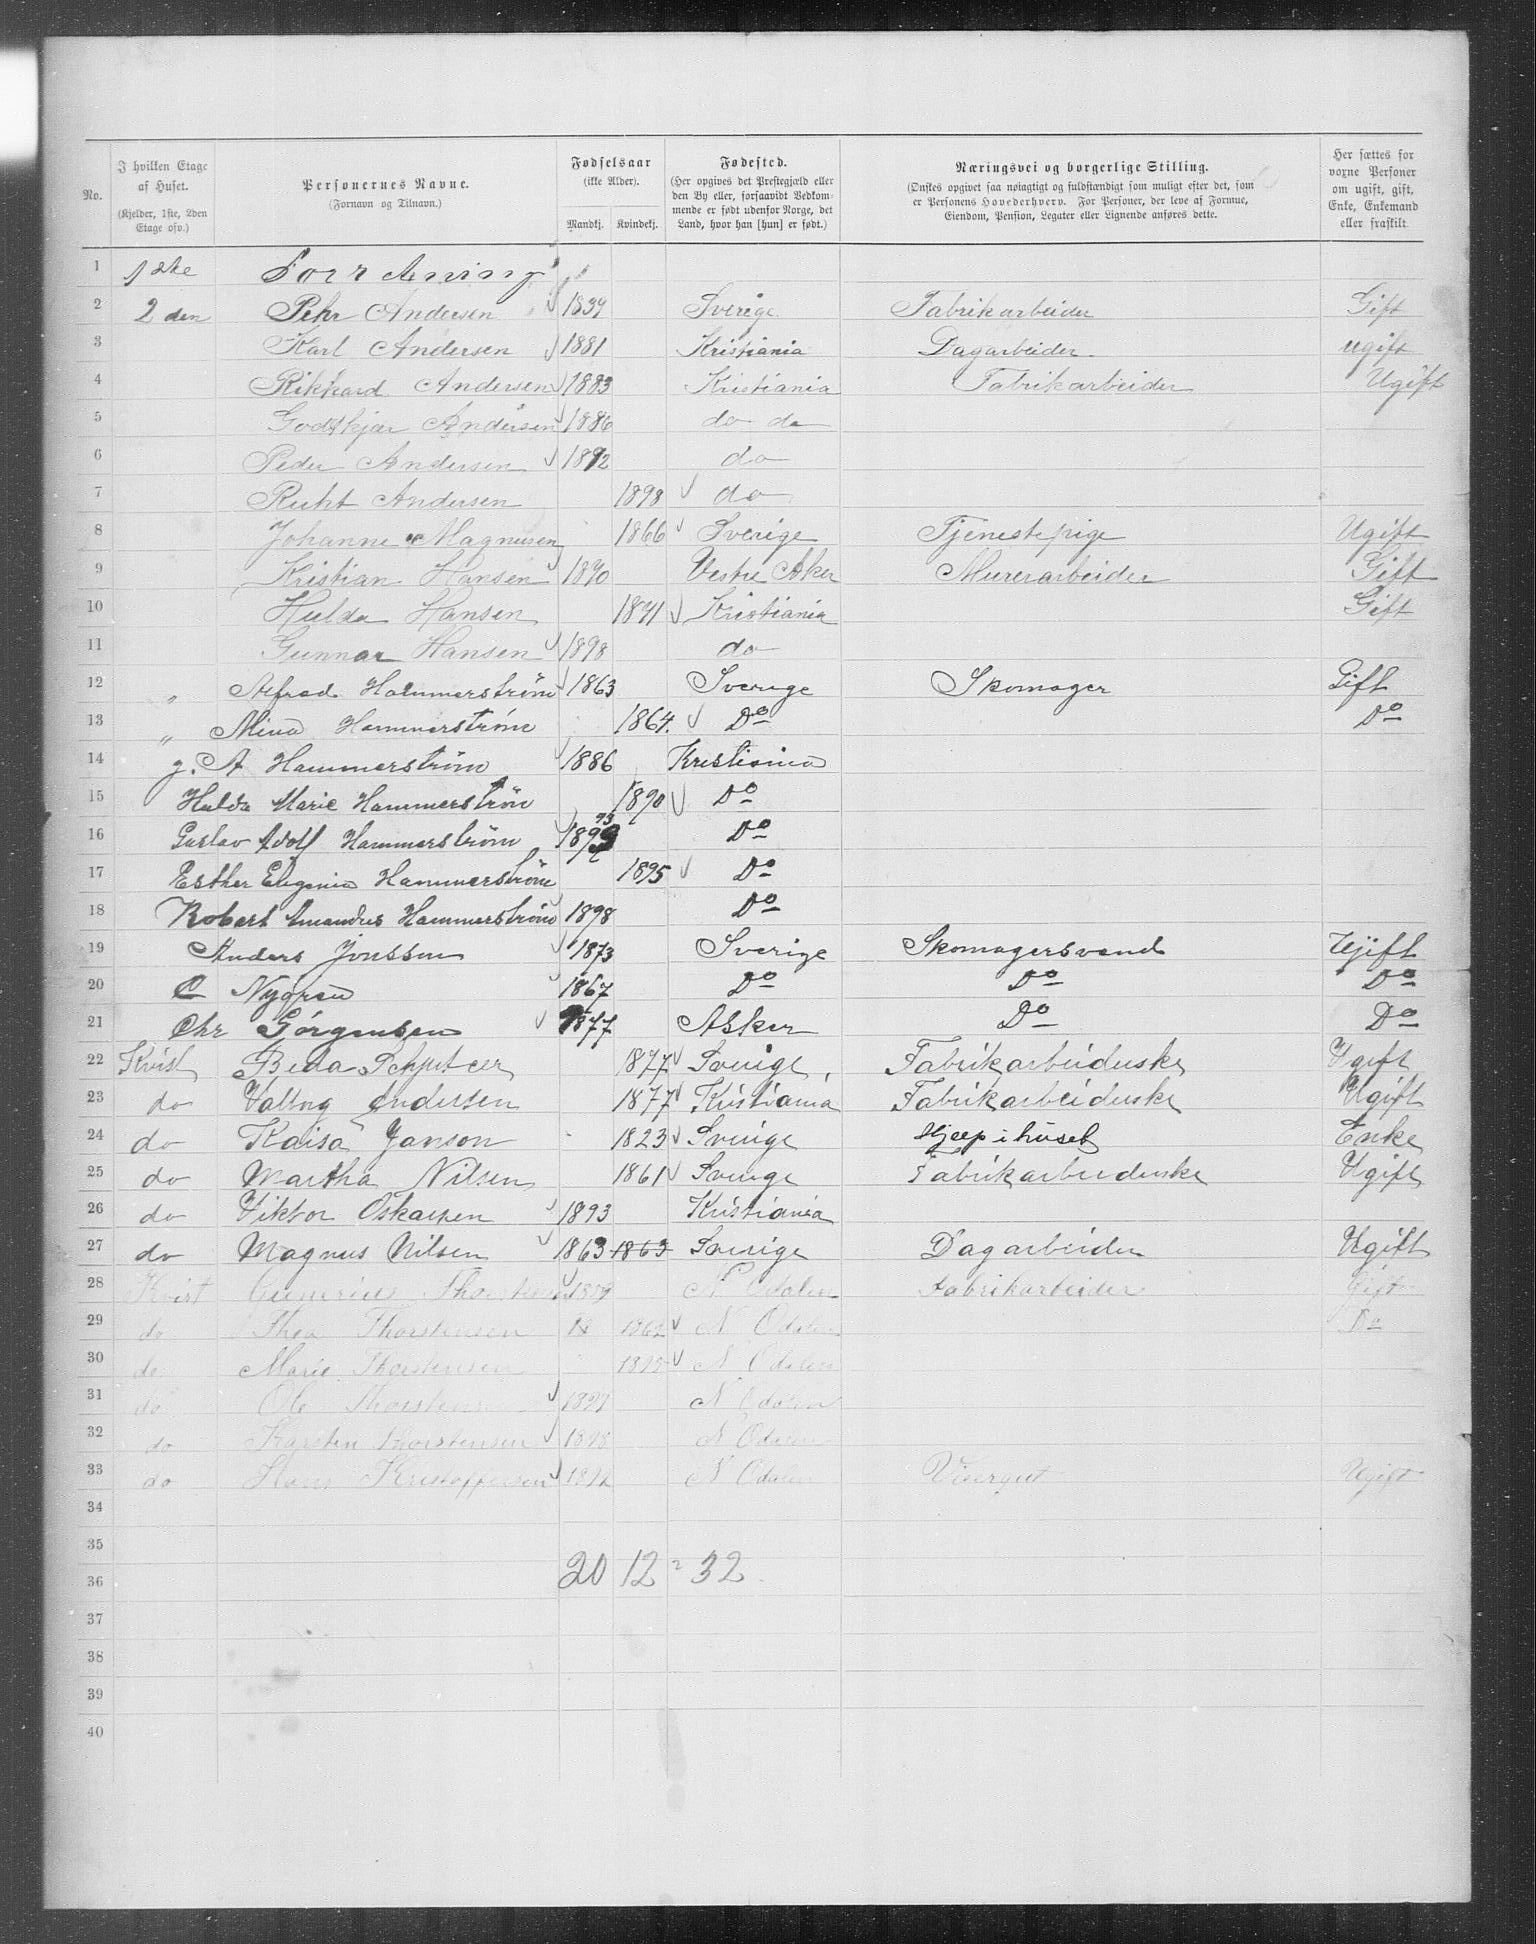 No. | I hvilken Etage af Huset. (Kjelder, 1ste, 2den Etage osv.) | Personernes Navne. (Fornavn og Tilnavn.) | Fødselsaar (ikke Alder). Mandkj. Kvindekj. | Fødested. (Her opgives det Prestegjæld eller den By eller, forsaavidt Vedkommende er født udenfor Norge, det Land, hvor han [hun] er født.) | Næringsvei og borgerlige Stilling. (Ønskes opgivet saa nøiagtigt og fuldstændigt som muligt efter det, som er Personens Hovederhverv. For Personer, der leve af Formue, Eiendom, Pension, Legater eller Lignende anføres dette. | Her sættes for voxne Personer om ugift, gift, Enke, Enkemand eller fraskilt
1 1ste Forretning
2 2den Pehr Andersen 1839 Sverige Fabrikarbeider Gift
3 Karl Andersen 1881 Kristiania Dagarbeider ugift
4 Rikkard Andersen 1883 Kristiania Fabrikarbeider Ugift
5 Andersen 1886 do do
6 Peder Andersen 1892 do
7 Ruht Andersen 1898 do
8 Johanne Magnusen 1866 Sverige Tjenestepige Ugift
9 Kristian Hansen 1870 Vestre Aker Murerarbeider Gift
10 Hulda Hansen 1871 Kristiania Gift
11 Gunnar Hansen 1898 do
12 " Alfred Hammerstrøm 1863 Sverige Skomager Gift
13 " Mina Hammerstrøm 1864. Do Do
14 g. A Hammerstrøm 1886 Kristiania
15 Hulda Marie Hammerstrøm 1890 Do
16 Gustav Adolf Hammerstrøm 93 Do
17 Esther Eugenia Hammerstrøm 1895 Do
18 Robert Amandus Hammerstrøm 1898 Do
19 Anders Jonsson 1873 Sverige Skomagersvend Ugift
20 C Nygren 1867 Do Do Do
21 Chr Jørgensen 1877 Asker Do Do
22 Kvist Beda 1877 Sverige Fabrikarbeiderske Ugift
23 do Valborg Andersen 1877 Kristiania Fabrikarbeiderske Ugift
24 do Kaisa Janson 1823 Sverige Hjelp i huset Enke
25 do Martha Nilsen 1861 Sverige Fabrikarbeiderske Ugift
26 do Viktor Oskarsen 1893 Kristiania
27 do Magnus Nilsen 1863 1863 Sverige Dagarbeider Ugift
28 Kvist Gunerius Thorstensen 1859 N Odalen Fabrikarbeider Gift
29 do Thea Thorstensen 1862 N Odalen Do
30 do Marie Thorstensen N Odalen
31 do Ole Thorstensen N Odalen
32 do Karsten Thorstensen 1898 N Odalen
33 do Hans Kristoffersen N Odalen Visergut Ugift
34
35
36 20 12 = 32
37
38
39
40